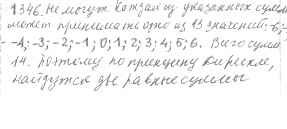 1346. Не могут Каждая из указанных сумм
может принимать одно из 13 значений: -6;
-4; -3; -2; -1; 0; 1; 2; 3; 4; 5; 6. Всего сумм
14. Поэтому по принципу Дирихле,
найдутся две равные суммы